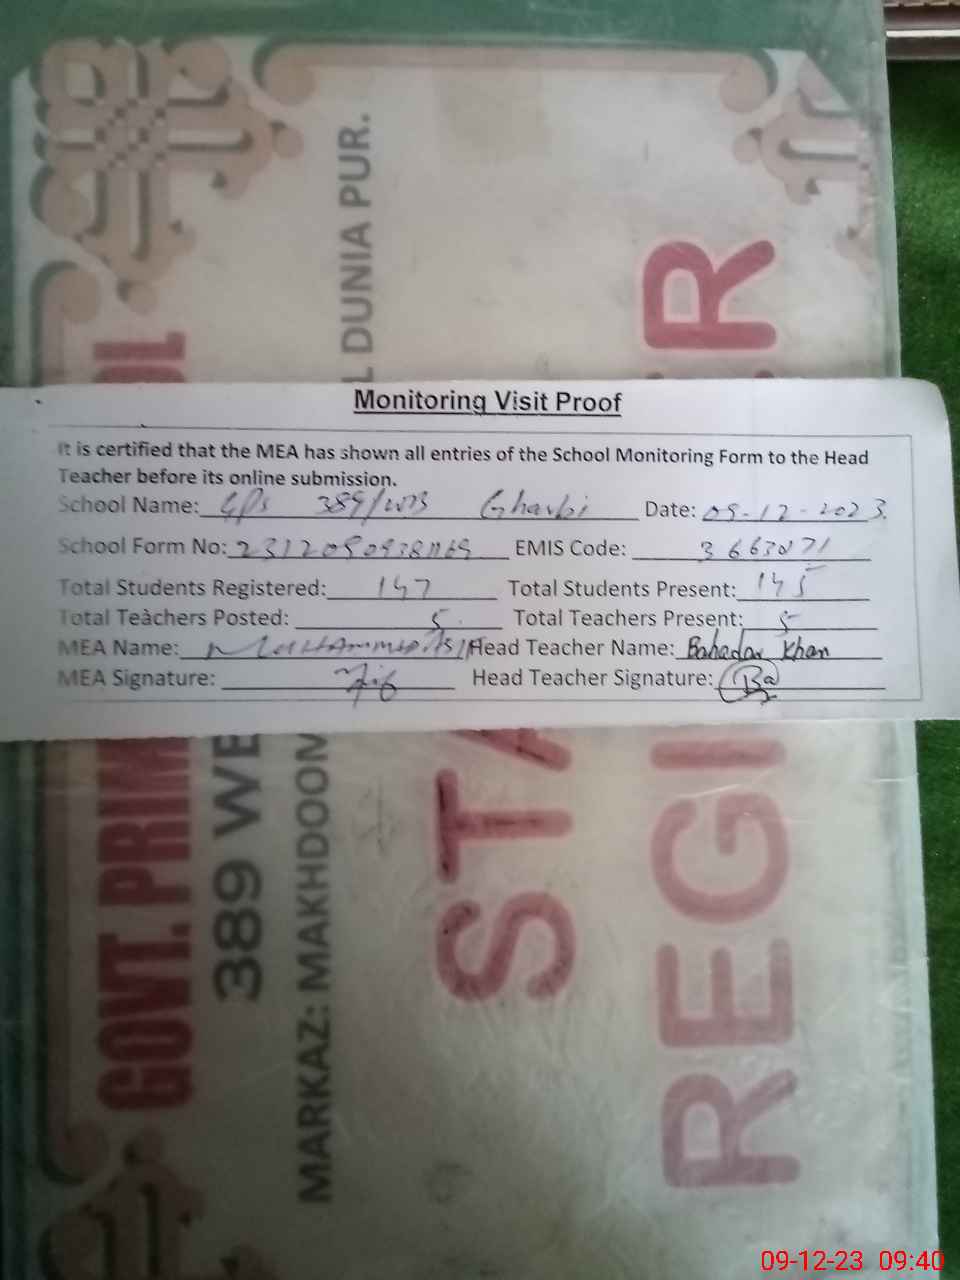 Monitoring Visit Proof
It is certified that the MEA has shown all entries of the School Monitoring Form to the Head
Teacher before its online submission.
School Name: GPS 389/WB Gharbi Date: 09-12-2023
School Form No: EMIS Code:
Total Students Registered: 147 Total Students Present: 145
Total Teachers Posted: 5 Total Teachers Present: 5
MEA Name: Muhammad Asif Head Teacher Name: Bahadar Khan
MEA Signature: Head Teacher Signature:
GOVT. PRIM OL
389 WE
MARKAZ: MAKHDOOM L DUNIA PUR.
STA
REGI R
09-12-23 09:40